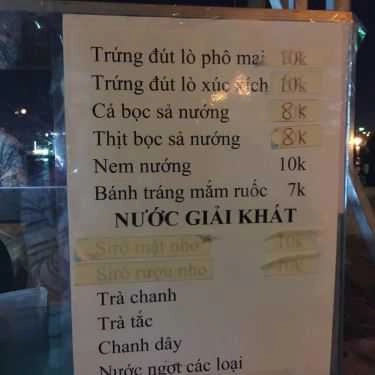 Trứng đút lò phô mai 10k
Trứng đút lò xúc xích 10k
Cá bọc sả nướng 8k
Thịt bọc sả nướng 8k
Nem nướng 10k
Bánh tráng mắm ruốc 7k
NƯỚC GIẢI KHÁT
Sirô mật nho 10k
Sirô rượu nho 10k
Trà chanh
Trà tắc
Chanh dây
Nước ngọt các loại